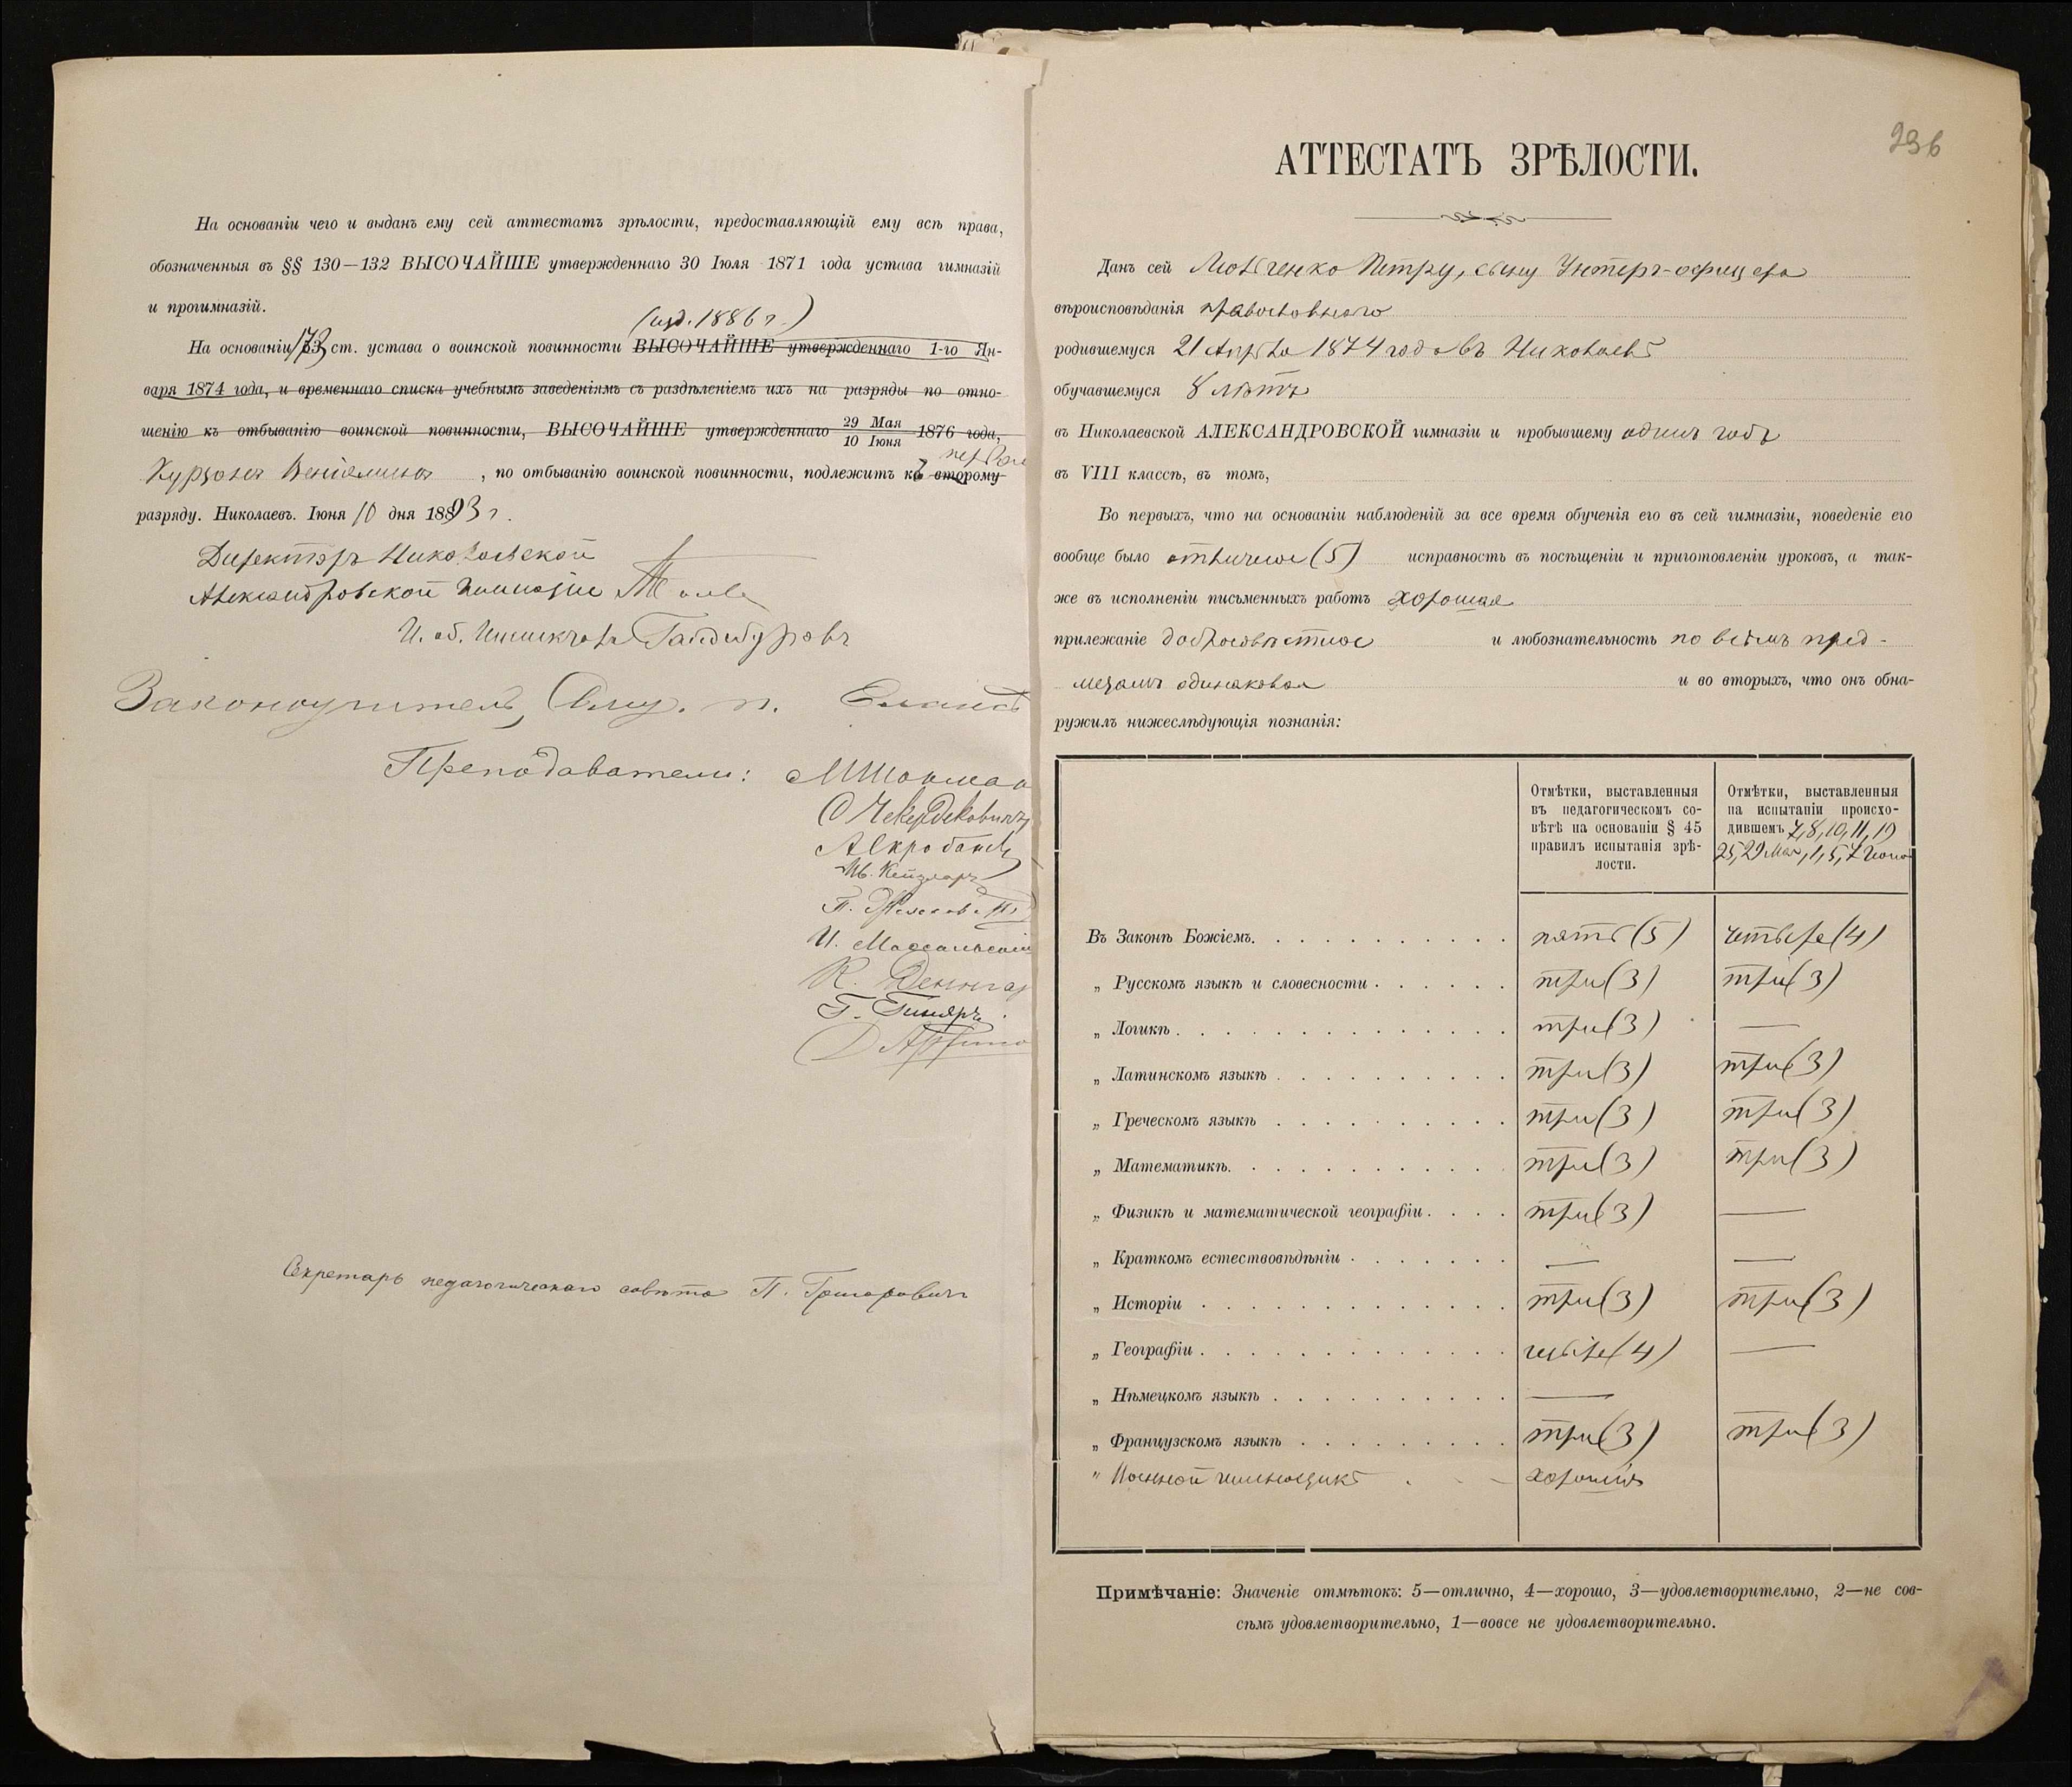 На основаніи чего и выданъ ему сей аттестатъ зрѣлости, предоставляющій ему всѣ права,
обозначенныя въ §§ 130—132 ВЫСОЧАЙШЕ утвержденнаго 30 Іюля 1871 года устава гимназій
и прогимназій.
(изд. 1886 г.)
На основаніи 173 ст. устава о воинской повинности ВЫСОЧАЙШЕ утвержденнаго 1-го Ян-
варя 1874 года, и временнаго списка учебнымъ заведеніямъ съ раздѣленіемъ ихъ на разряды по отно-
шенію къ отбыванію воинской повинности, ВЫСОЧАЙШЕ утвержденнаго 29 Мая 10 Іюня 1876 года,
Веніаминъ, по отбыванію воинской повинности, подлежитъ ко второму
разряду. Николаевъ. Іюня 10 дня 1893 г.
Директоръ Николаевской
Александровской Гимназіи
И. об. Инспектора Гайдебуровъ
Законоучитель,
Преподаватели:
Секретарь педагогическаго совѣта П. Григоровичъ
236
АТТЕСТАТЪ ЗРѢЛОСТИ.
Данъ сей Петру, сыну Унтеръ-офицера
вѣроисповѣданія православнаго
родившемуся 21 Апрѣля 1874 года въ Николаевѣ
обучавшемуся 8 лѣтъ
въ Николаевской АЛЕКСАНДРОВСКОЙ гимназіи и пробывшему одинъ годъ
въ VIII классѣ, въ томъ,
Во первыхъ, что на основаніи наблюденій за все время обученія его въ сей гимназіи, поведеніе его
вообще было отличное (5) исправность въ посѣщеніи и приготовленіи уроковъ, а так-
же въ исполненіи письменныхъ работъ хорошая
прилежаніе добросовѣстное и любознательность по всѣмъ пред-
метамъ одинаковая и во вторыхъ, что онъ обна-
ружилъ нижеслѣдующія познанія:
Отмѣтки, выставленныя
въ педагогическомъ со-
вѣтѣ на основаніи § 45
правилъ испытанія зрѣ-
лости.
Отмѣтки, выставленныя
на испытаніи происхо-
дившемъ 7, 8, 10, 11, 19
25, 29 Мая, 1, 5, 7 Іюня
Въ Законѣ Божіемъ. пять (5) четыре (4)
„ Русскомъ языкѣ и словесности три (3) три (3)
„ Логикѣ три (3) —
„ Латинскомъ языкѣ три (3) три (3)
„ Греческомъ языкѣ три (3) три (3)
„ Математикѣ. три (3) три (3)
„ Физикѣ и математической географіи. три (3) —
„ Краткомъ естествовѣдѣніи — —
„ Исторіи три (3) три (3)
„ Географіи четыре (4) —
„ Нѣмецкомъ языкѣ —
„ Французскомъ языкѣ три (3) три (3)
„ Военной гимнастикѣ хорошія
Примѣчаніе: Значеніе отмѣтокъ: 5—отлично, 4—хорошо, 3—удовлетворительно, 2—не сов-
сѣмъ удовлетворительно, 1—вовсе не удовлетворительно.